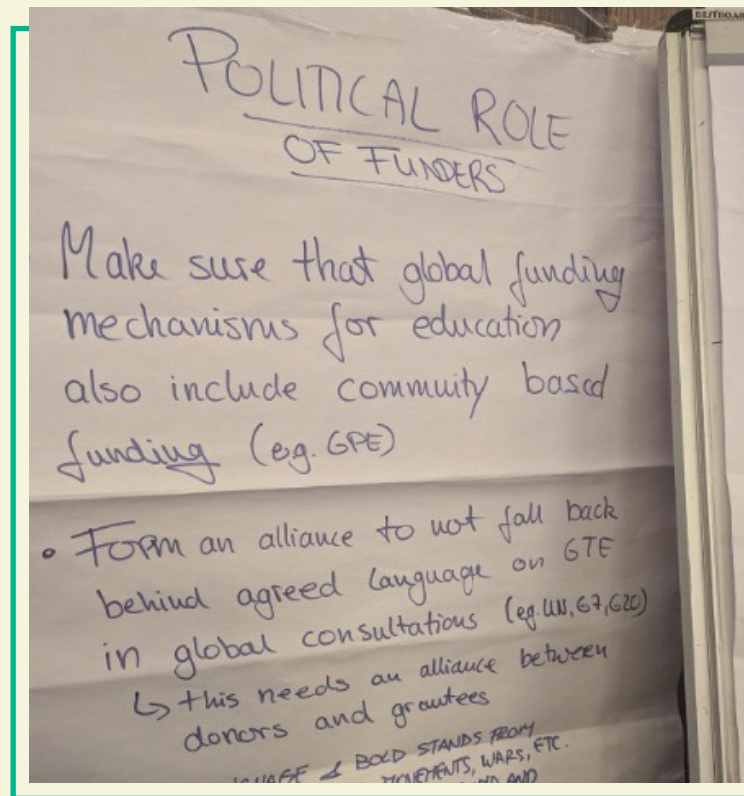 BESTBOARD
POLITICAL ROLE
OF FUNDERS
Make sure that global funding
mechanisms for education
also include commuity based
funding (eg. GPE)
• Form an alliance to not fall back
behind agreed language on GTE
in global consultations (eg. UN, G7, G20)
↳ this needs an alliance between
donors and grantees
& BOLD STANDS FROM
MOVEMENTS, WARS, ETC.
AND